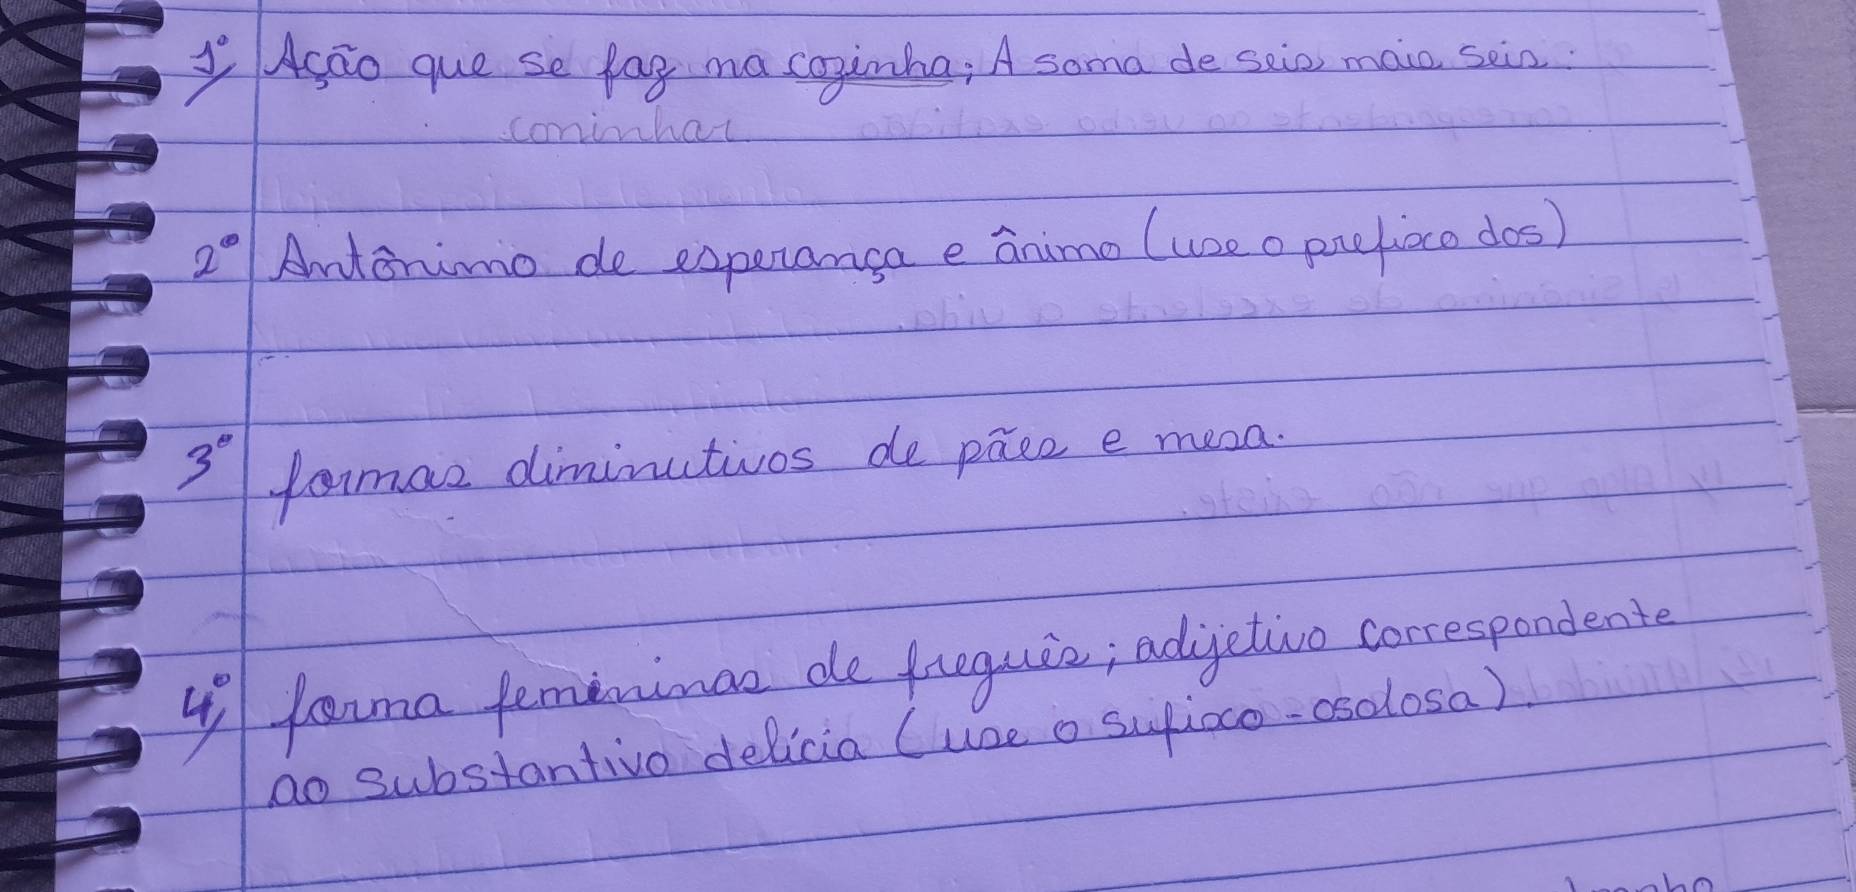 1º Ação que se faz na cozinha; A soma de seis mais seis.
coninhar
2º Antônimo de esperança e ânimo (use o prefixo dos)
3º formas diminutivos de pães e mesa.
4º forma femininas de freguês; adijetivo correspondente
ao substantivo delícia (use o sufixo -osolosa).